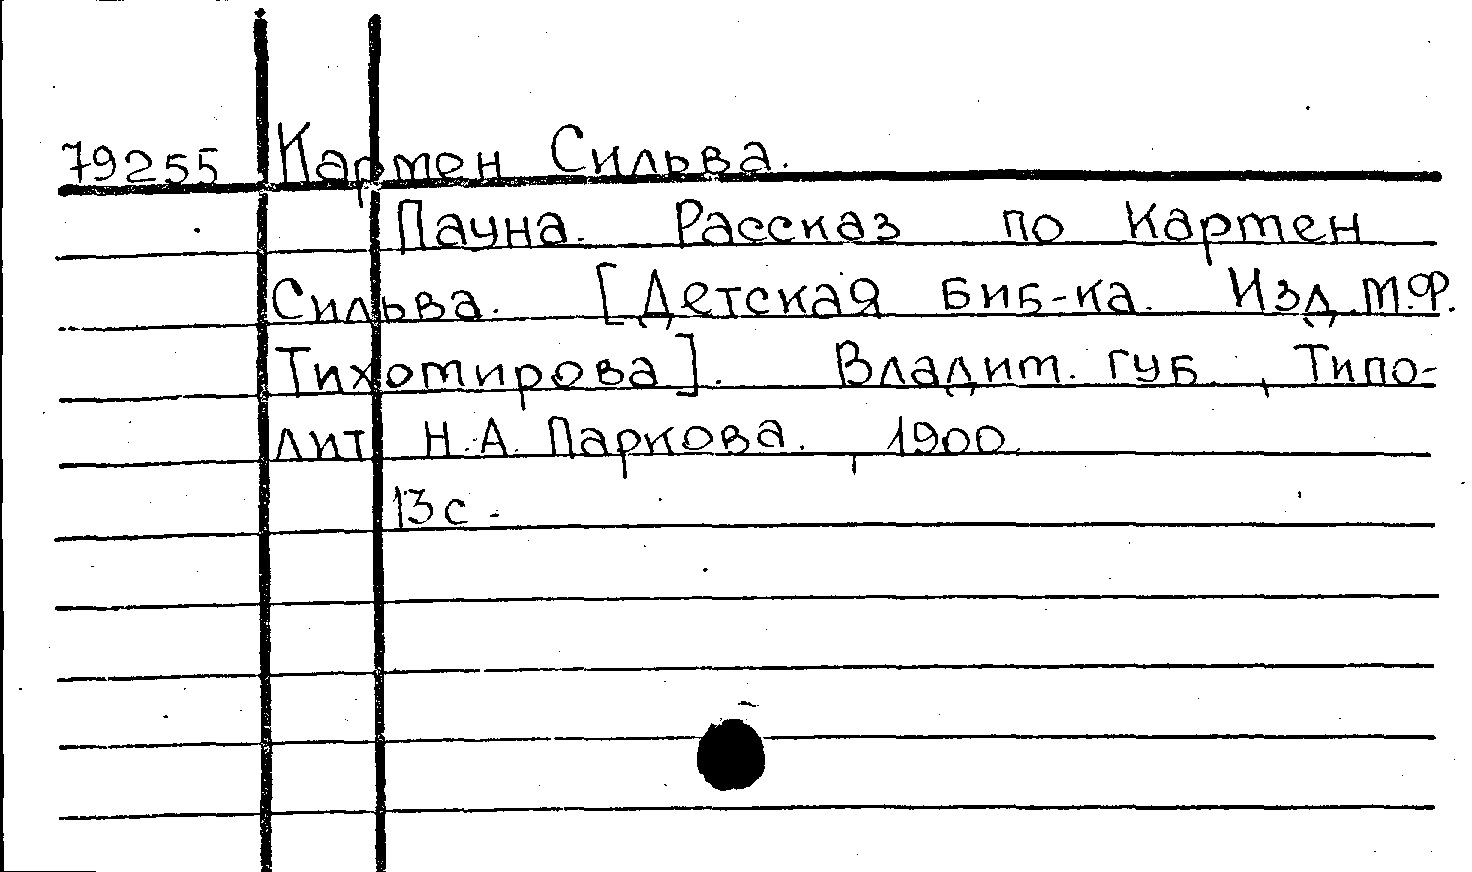 79255 Кармен Сильва.
Пауна. Рассказ по Кармен
Сильва. [Детская биб-ка. Изд. М.Ф.
Тихомирова]. Владим. губ., Типо-
лит. Н.А. Паркова., 1900.
13 с.